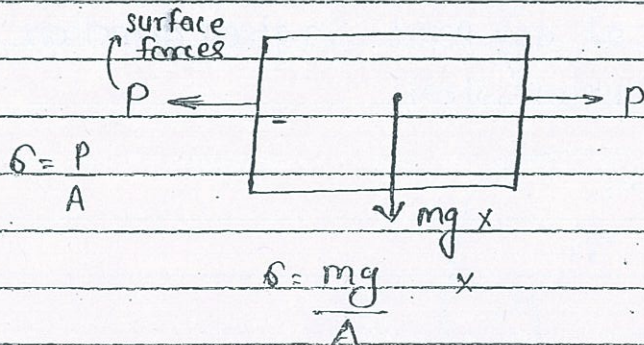 surface
forces
P P
σ = P
A
mg x
σ = mg x
A